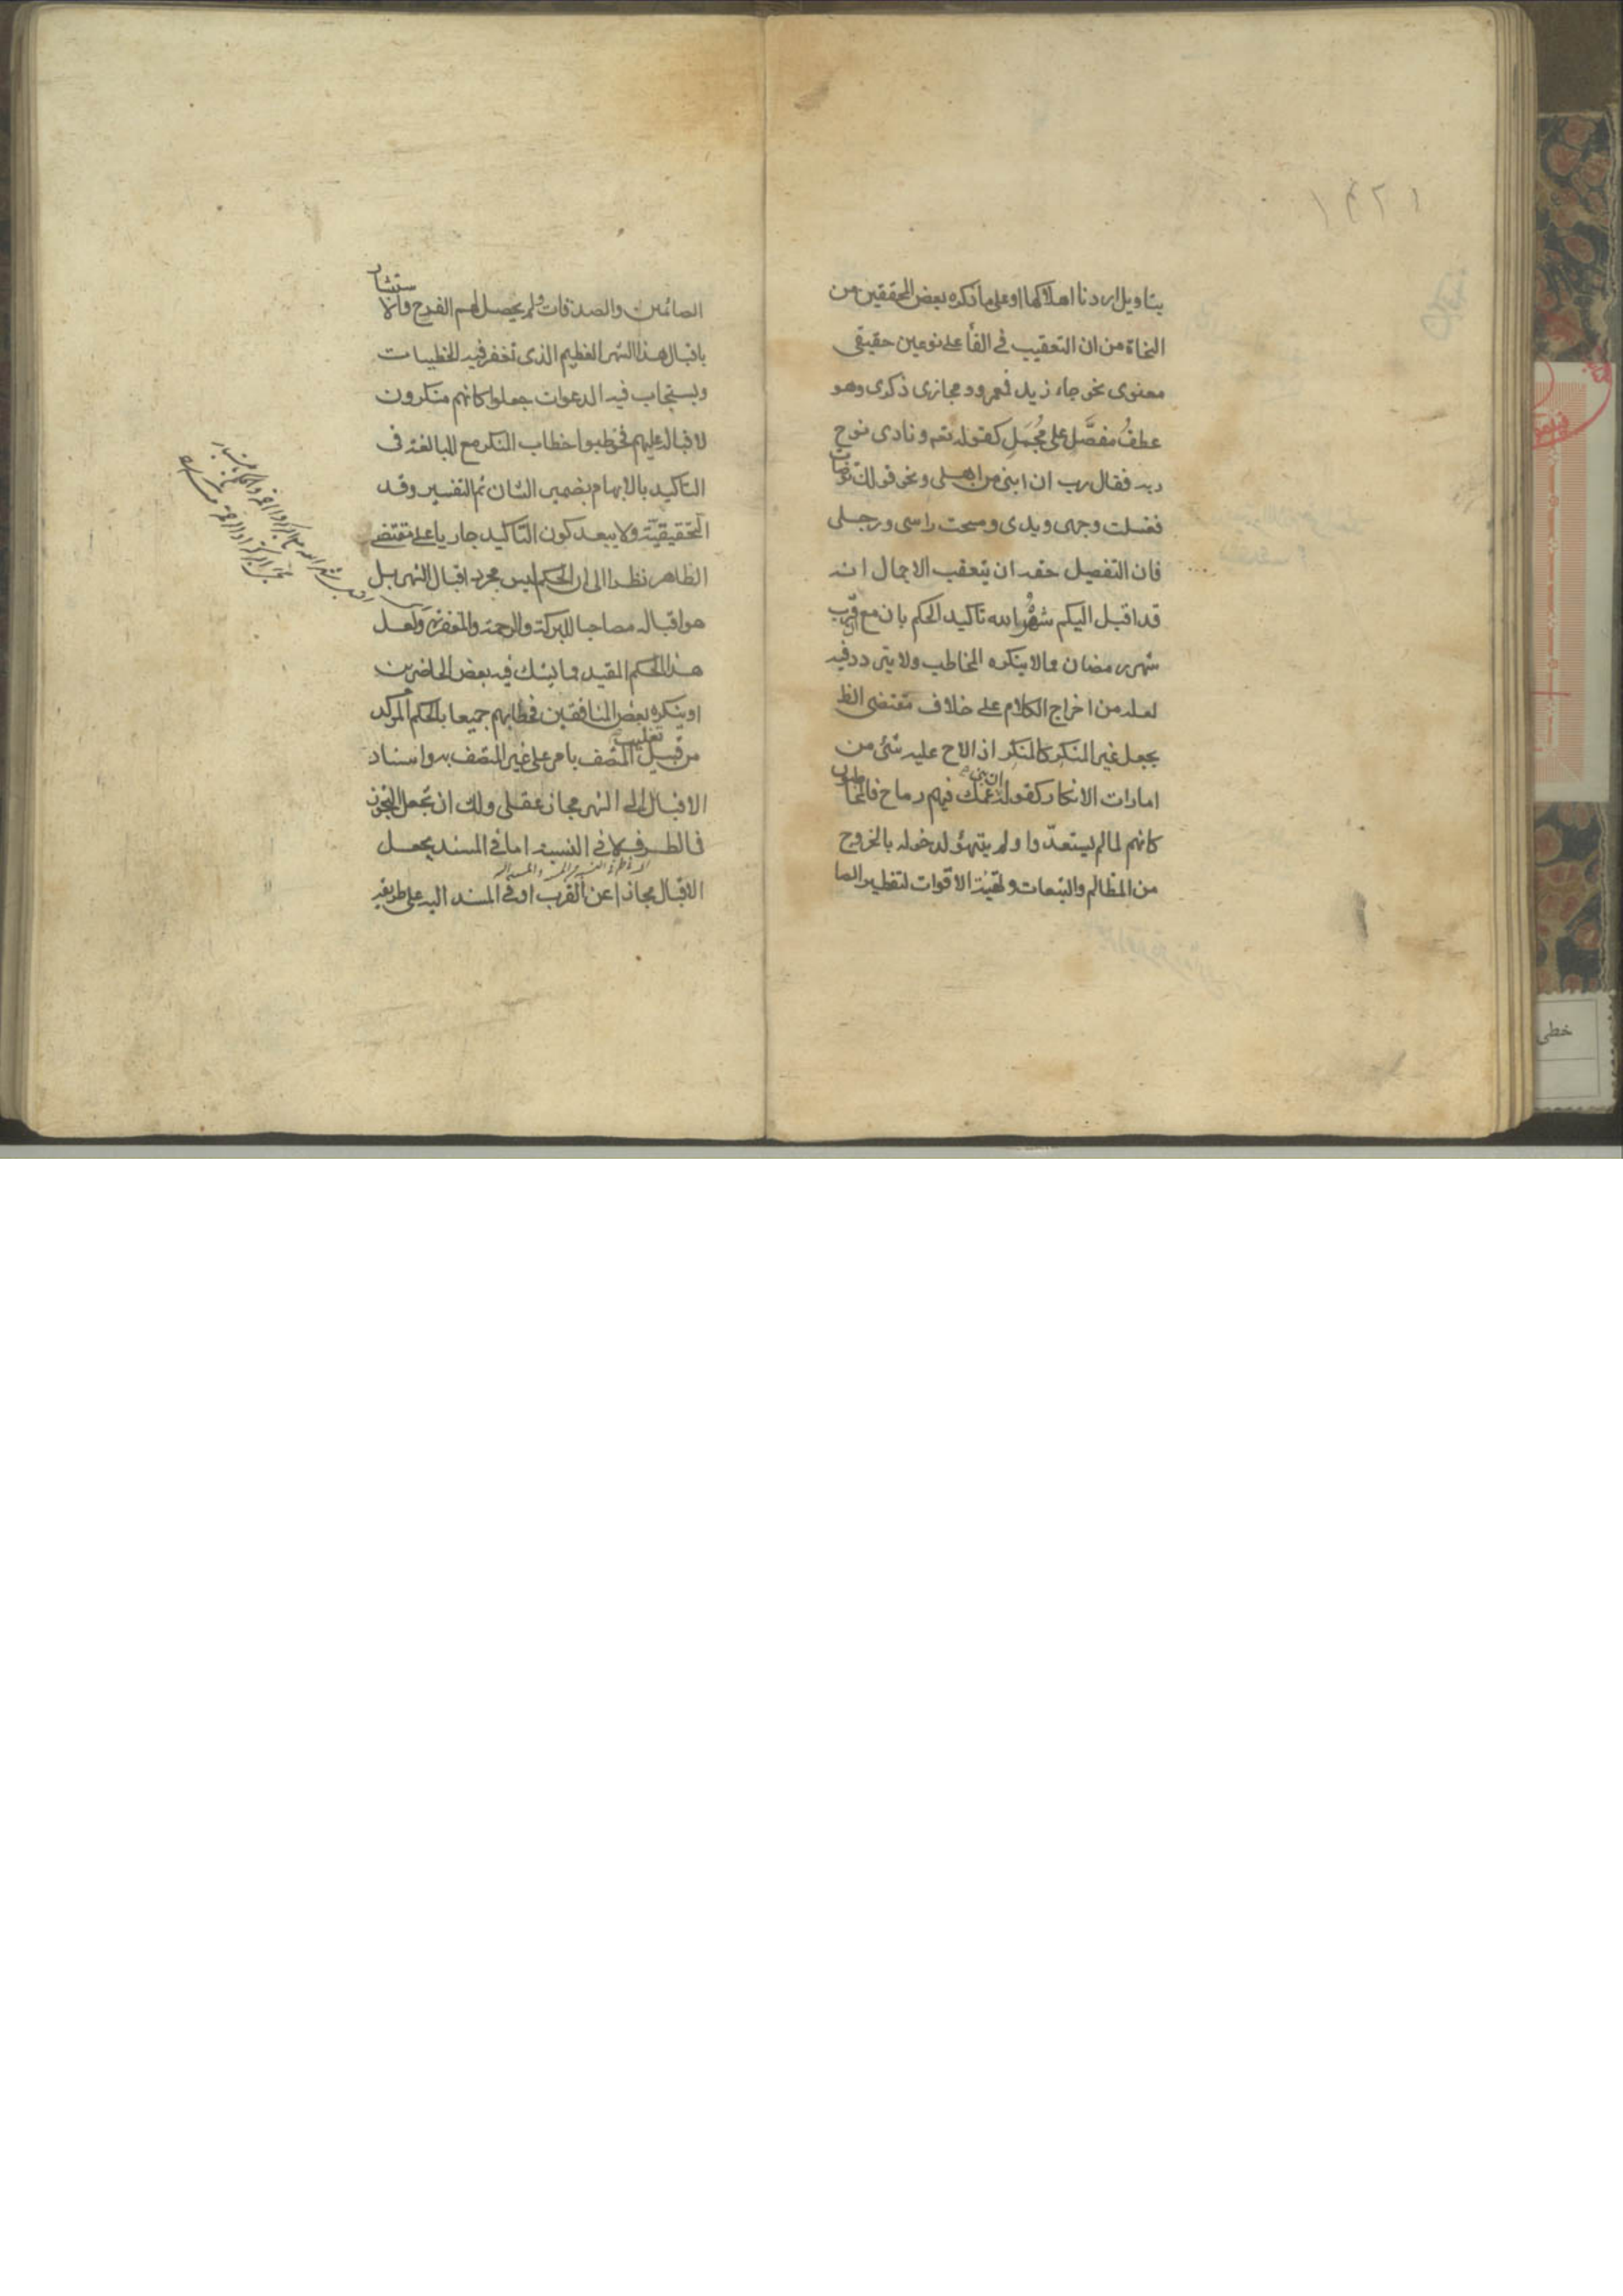 بتاويل اردنا اهلاكها او على ما ذكره بعض المحققين من
النحاة من ان التعقيب في الفاء على نوعين حقيقى
معنوى نحو جاء زيد فعمرو ومجازى ذكرى وهو
عطف مفصَّل على مُجمَلٍ كقوله تعه ونادى نوح
ربه فقال رب ان ابنى من اهلى ونحو قولك توضأت
فغسلت وجهى ويدى ومسحت راسى ورجلى
فان التفصيل حقه ان يتعقب الاجمال انه
قد اقبل اليكم شهرُ الله تاكيد الحكم بان مع قرب
شهر رمضان مما لا ينكره المخاطب ولا يتردد فيه
لعله من اخراج الكلام على خلاف مقتضى الظ
بجعل غير المنكر كالمنكر اذ الاح عليه شئ من
امارات الانكار كقوله ان بنى عمك فيهم رماح فالحاضرون
كانهم لما لم يستعدّوا ولم يتهيؤ لدخوله بالخروج
من المظالم والتبعات وتهيئة الاقوات لتفطير الصا
١٤٢١
الصائمين والصدقات ولم يحصل لهم الفرح والاستبشار
باقبال هذا الشهر العظيم الذى تغفر فيه الخطيات
ويستجاب فيه الدعوات جعلوا كانهم منكرون
لاقباله عليهم فخوطبوا خطاب المنكر مع المبالغة فى
التاكيد بالابهام بضمير الشان ثم التفسير وقد
التحقيقية ولا يبعد كون التاكيد جاريا على مقتضى
الظاهر نظرا الى ان الحكم ليس مجرد اقبال الشهر بل
هو اقباله مصاحبا للبركة والرحمة والمغفرة ولعل
هذا الحكم المقيد مما يشك فيه بعض الحاضرين
او ينكره بعض المنافقين فخطابهم جميعا بالحكم المؤكد
من قبيل تغليب المتصف بامر على غير المتصف به واسناد
الاقبال الى الشهر مجاز عقلى ولك ان تجعل التجوز
فى الطرف لا فى النسبة اما فى المسند بجعل
الاقبال مجازا عن القرب او فى المسند اليه على طريقه
خطى